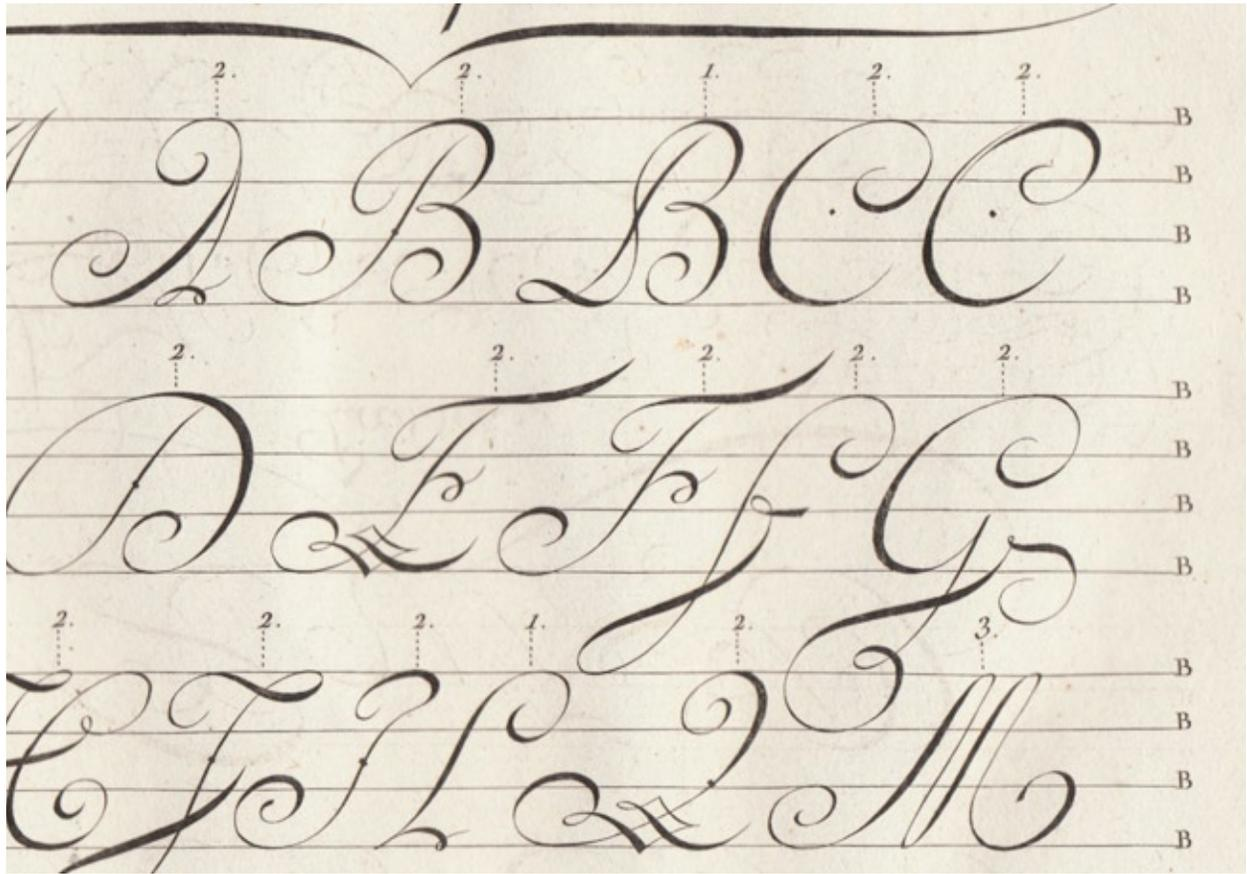 2. 2. 1. 2. 2.
A B B C C B
B
B
B
2. 2. 2. 2. 2.
D E F F G B
B
B
B
2. 2. 2. 1. 2. 3.
H J I L L M B
B
B
B